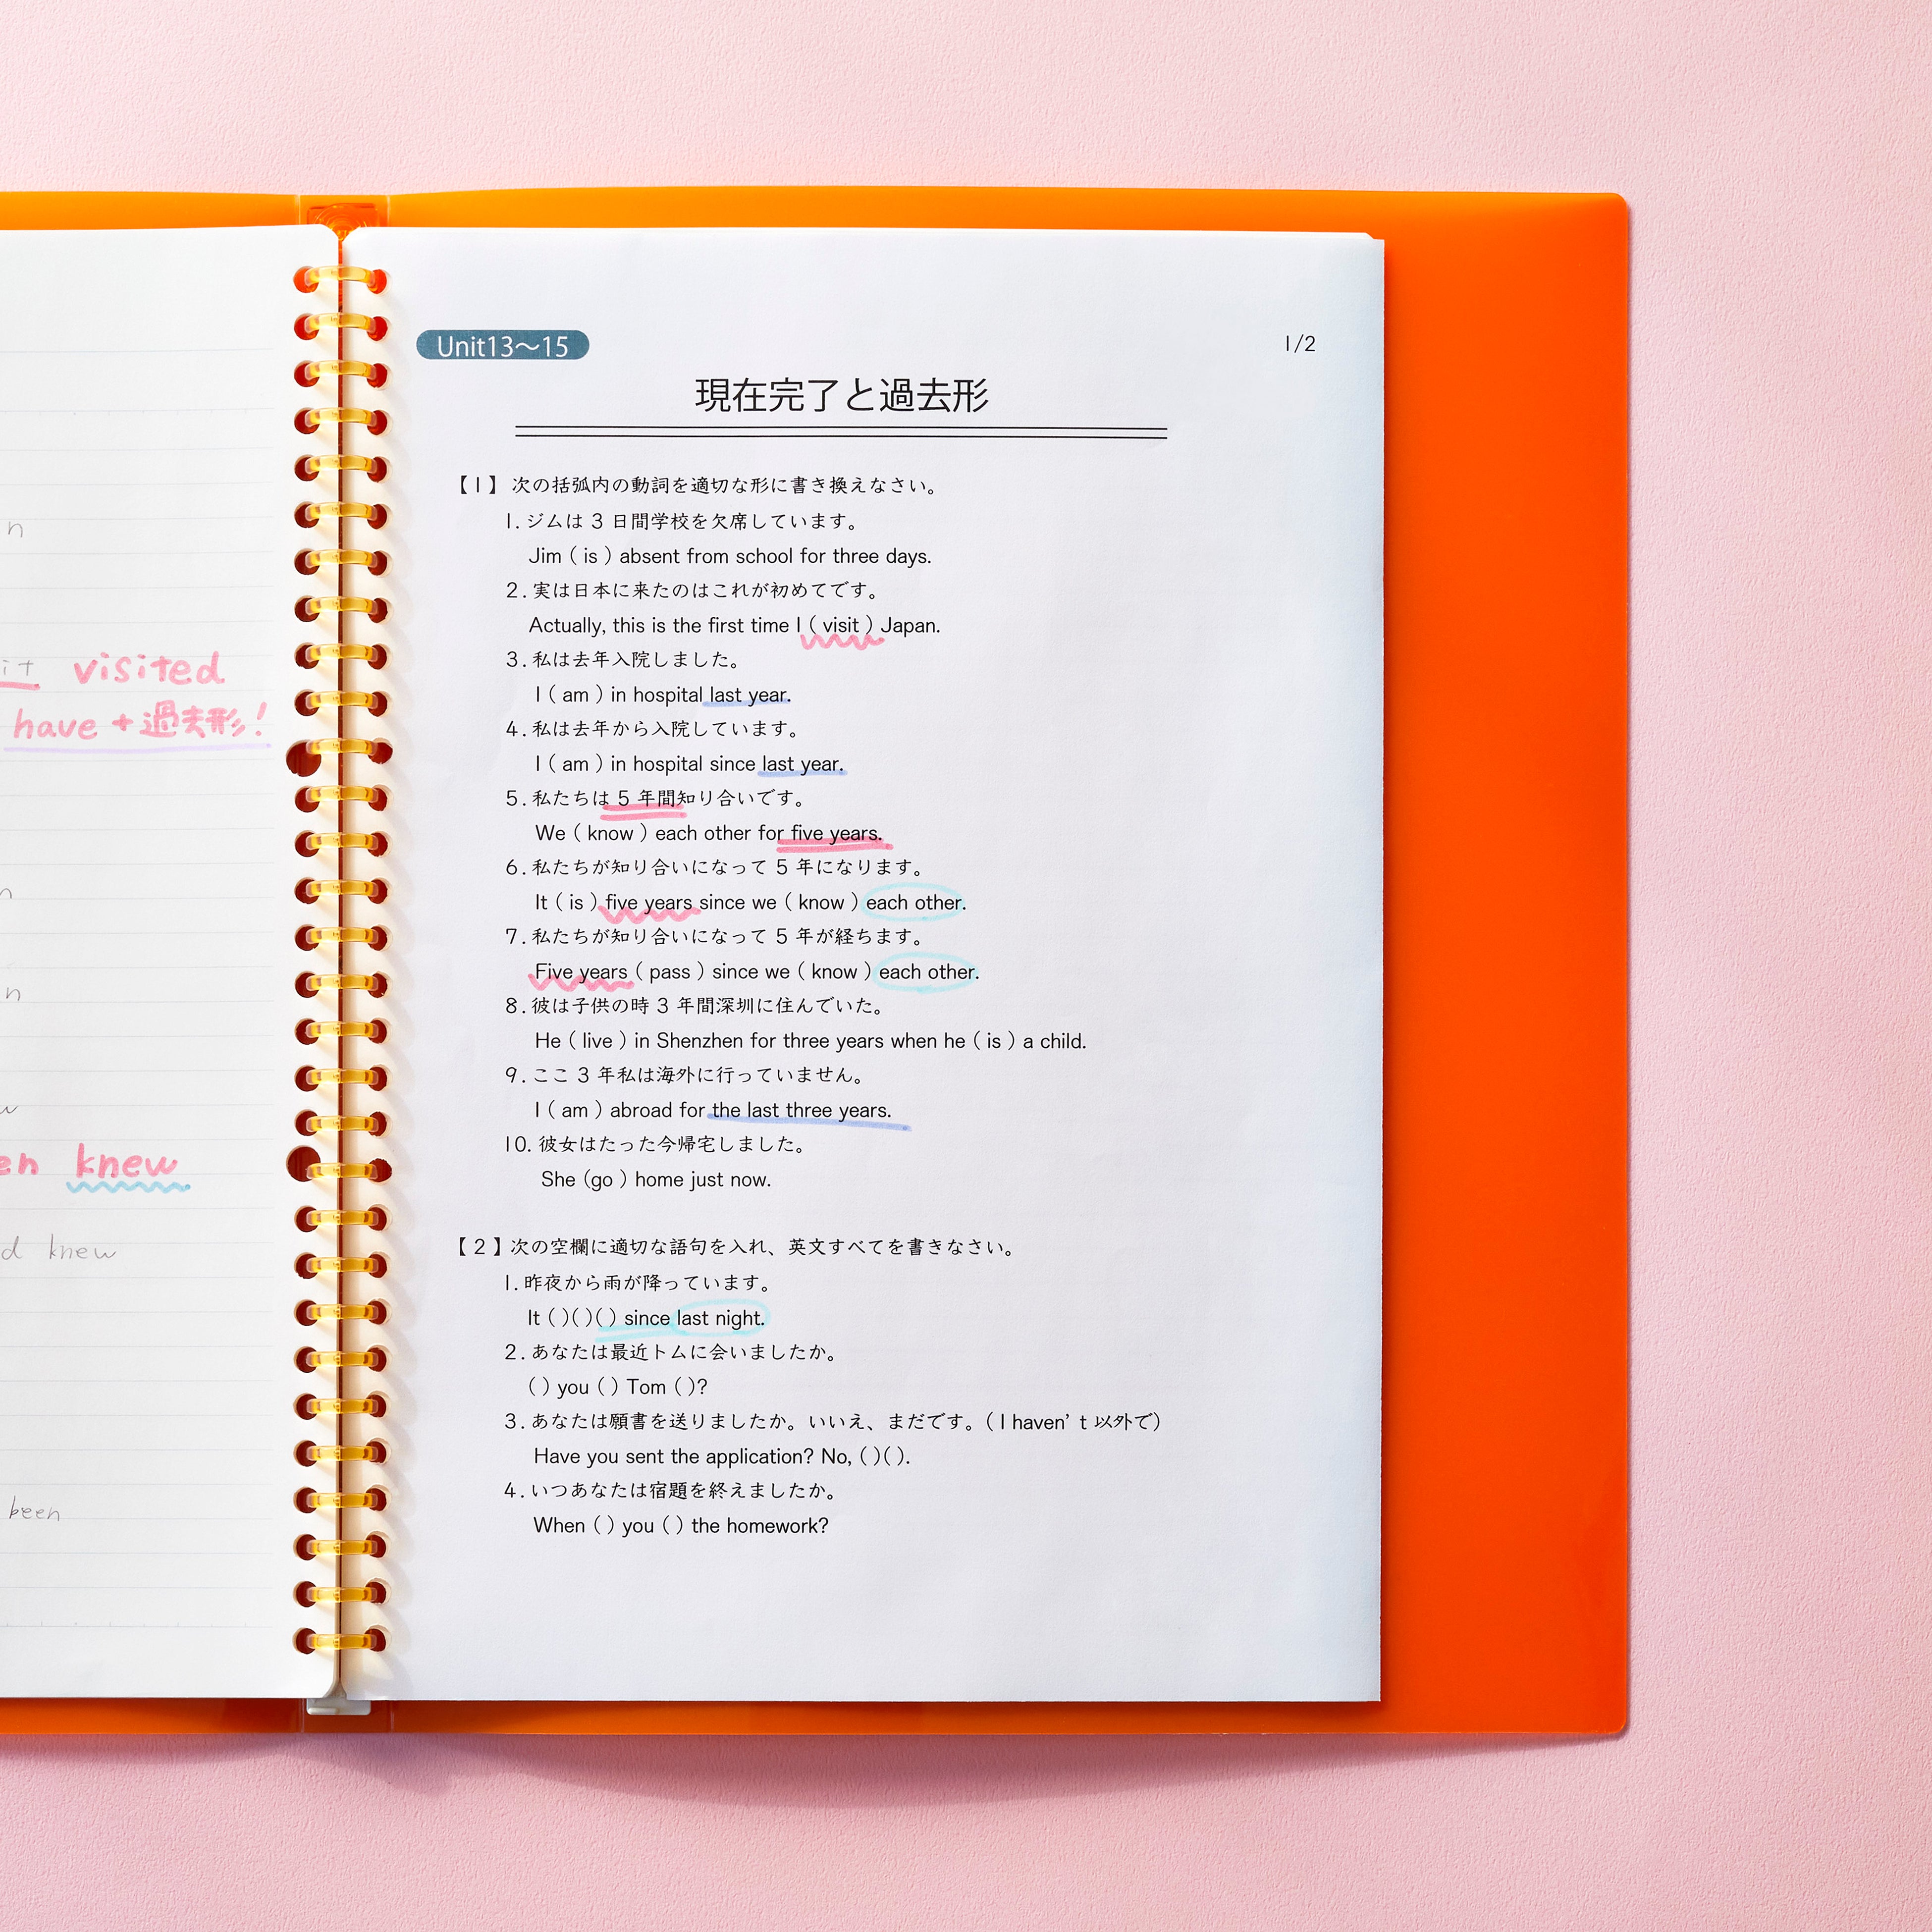 n
visited
have + 過去形!
n
n
knew
d knew
been
Unit13～15
1/2
現在完了と過去形
【1】 次の括弧内の動詞を適切な形に書き換えなさい。
1. ジムは 3 日間学校を欠席しています。
Jim ( is ) absent from school for three days.
2. 実は日本に来たのはこれが初めてです。
Actually, this is the first time I ( visit ) Japan.
3. 私は去年入院しました。
I ( am ) in hospital last year.
4. 私は去年から入院しています。
I ( am ) in hospital since last year.
5. 私たちは 5 年間知り合いです。
We ( know ) each other for five years.
6. 私たちが知り合いになって 5 年になります。
It ( is ) five years since we ( know ) each other.
7. 私たちが知り合いになって 5 年が経ちます。
Five years ( pass ) since we ( know ) each other.
8. 彼は子供の時 3 年間深圳に住んでいた。
He ( live ) in Shenzhen for three years when he ( is ) a child.
9. ここ 3 年私は海外に行っていません。
I ( am ) abroad for the last three years.
10. 彼女はたった今帰宅しました。
She (go ) home just now.
【2】次の空欄に適切な語句を入れ、英文すべてを書きなさい。
1. 昨夜から雨が降っています。
It ( )( )( ) since last night.
2. あなたは最近トムに会いましたか。
( ) you ( ) Tom ( )?
3. あなたは願書を送りましたか。いいえ、まだです。( I haven' t 以外で)
Have you sent the application? No, ( )( ).
4. いつあなたは宿題を終えましたか。
When ( ) you ( ) the homework?